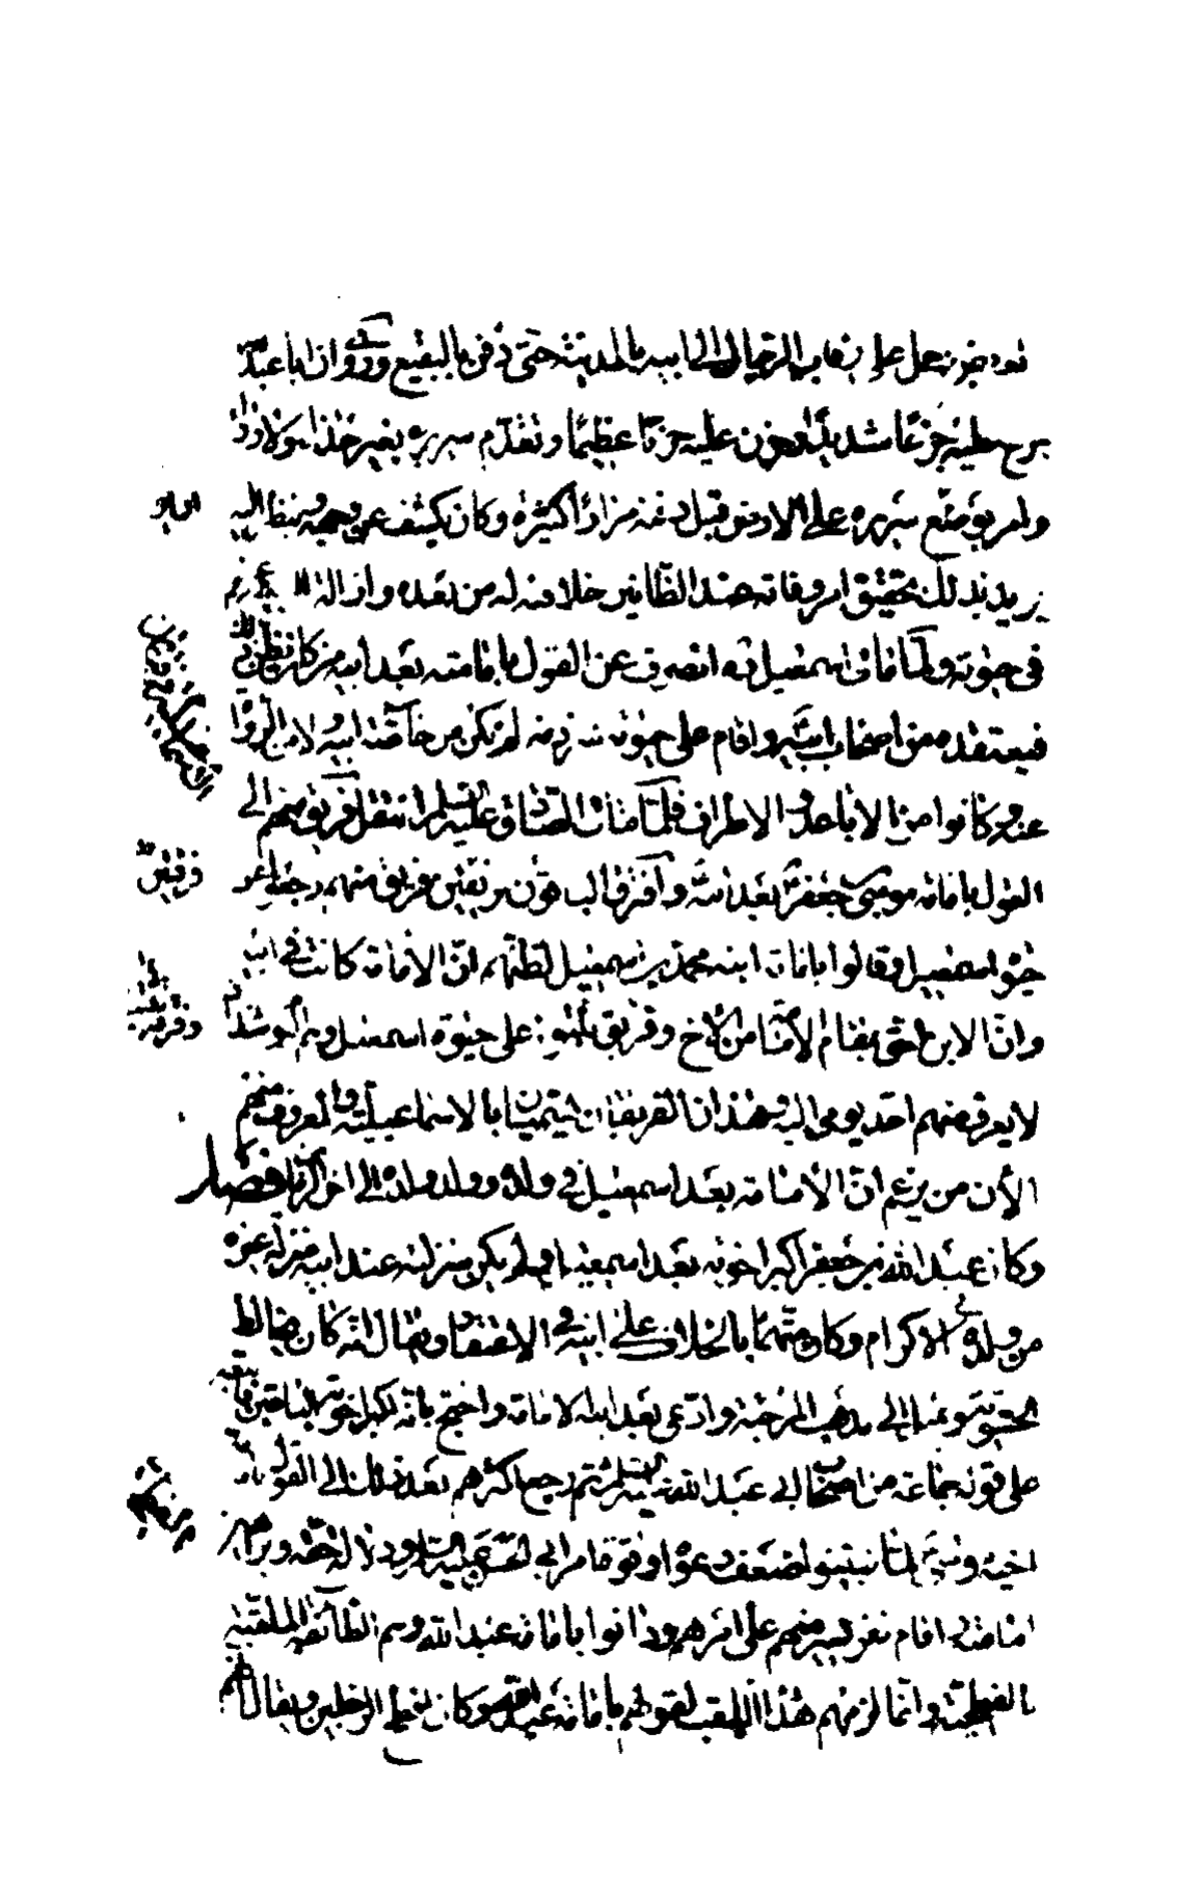 بالعريض وحمل على رقاب الرجال الى ابيه بالمدينة حتى دفن بالبقيع وروى ان ابا عبد الله
جزع عليه جزعا شديدا وحزن عليه حزنا عظيما وتقدم سريره بغير حذاء ولا رداء
وامر بوضع سريره على الارض قبل دفنه مرارا كثيرة وكان يكشف عن وجهه وينظر اليه
يريد بذلك تحقيق امر وفاته عند الظانين خلافته له من بعده وازالة
في حيوته ولما مات اسمعيل ره انصرف عن القول بامامته بعد ابيه من كان يظن ذلك
فيعتقده من اصحاب ابيه واقام على حيوته شرذمة لم تكن من خاصة ابيه ولا من الرواة
عنه وكانوا من الاباعد والاطراف فلما مات الصادق عليه السلم انتقل فريق منهم الى
القول بامامة موسى بن جعفر بعد ابيه وافترق الباقون فريقين فريق منهم رجعوا عن
حيوة اسمعيل وقالوا بامامة ابنه محمد بن اسمعيل لظنهم ان الامامة كانت في ابيه
وان الابن احق بمقام الامامة من الاخ وفريق ثبتوا على حيوة اسمعيل وهم اليوم شذاذ
لا يعرف منهم احد يومى اليه وهذان الفريقان يسميان بالاسماعيلية والمعروف منهم
الأن من يزعم ان الامامة بعد اسمعيل في ولده وولد ولده الى اخر الزمان فصل
وكان عبد الله بن جعفر اكبر اخوته بعد اسمعيل ولم يكن منزلته عند ابيه منزلة غيره
من ولده في الاكرام وكان متهما بالخلاف على ابيه في الاعتقاد ويقال انه كان يخالط
الحشوية ويميل الى مذهب المرجئة وادعى بعد ابيه الامامة واحتج بانه اكبر اخوته الباقين فاتبعه
على قوله جماعة من اصحاب ابي عبد الله عليه السلم ثم رجع اكثرهم بعد ذلك الى القول بامامة
اخيه موسى لما تبينوا ضعف دعواه وقوة امر ابي الحسن عليه السلام ودلالة حقه وبراهين
امامته واقام نفر يسير منهم على امرهم ودانوا بامامة عبد الله وهم الطائفة الملقبة
بالفطحية وانما لزمهم هذا اللقب لقولهم بامامة عبد الله وكان افطح الرجلين ويقال انهم
فريقين